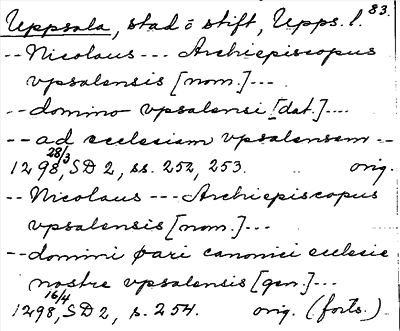 83.
Uppsala, stad o stift, Upps. l.
-- Nicolaus --- Archiepiscopus
vpsalensis [nom.] ---
-- domino vpsalensi [dat.] ---
-- ad ecclesiam vpsalensem --
1298 28/3, SD 2, ss. 252, 253. orig.
-- Nicolaus --- Archiepiscopus
vpsalensis [nom.] ---
-- domini pari canonici ecclesie
nostre vpsalensis [gen.] ---
1298 16/4, SD 2, s. 254. orig. (forts.)